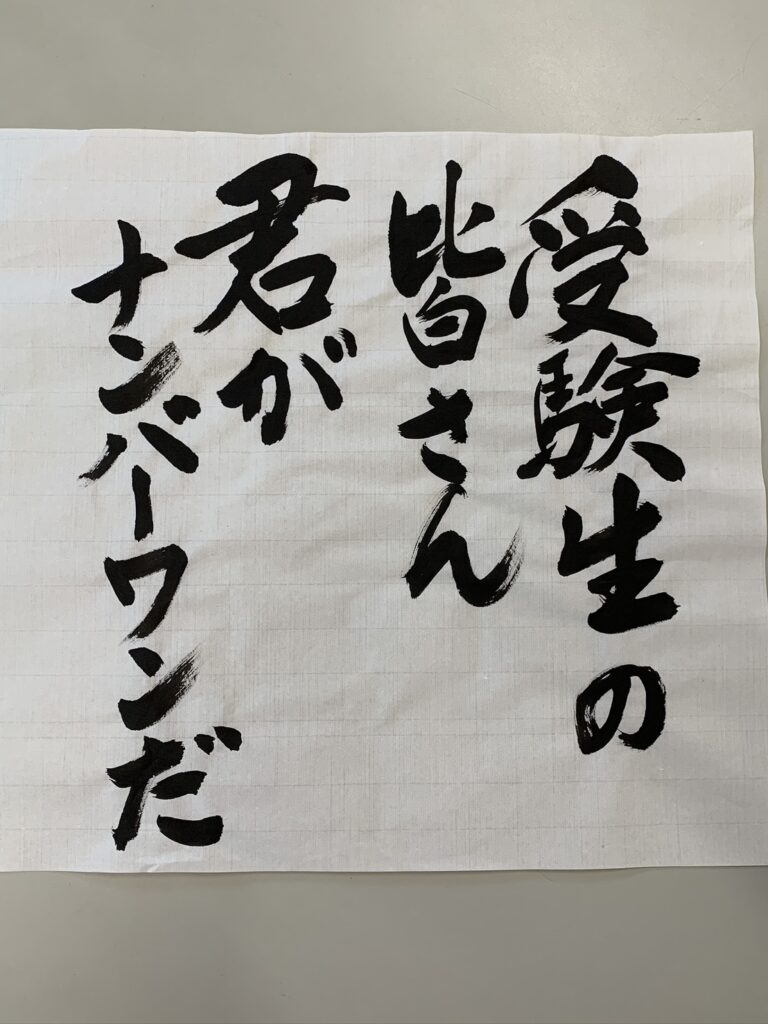 受験生の
皆さん
君が
ナンバーワンだ